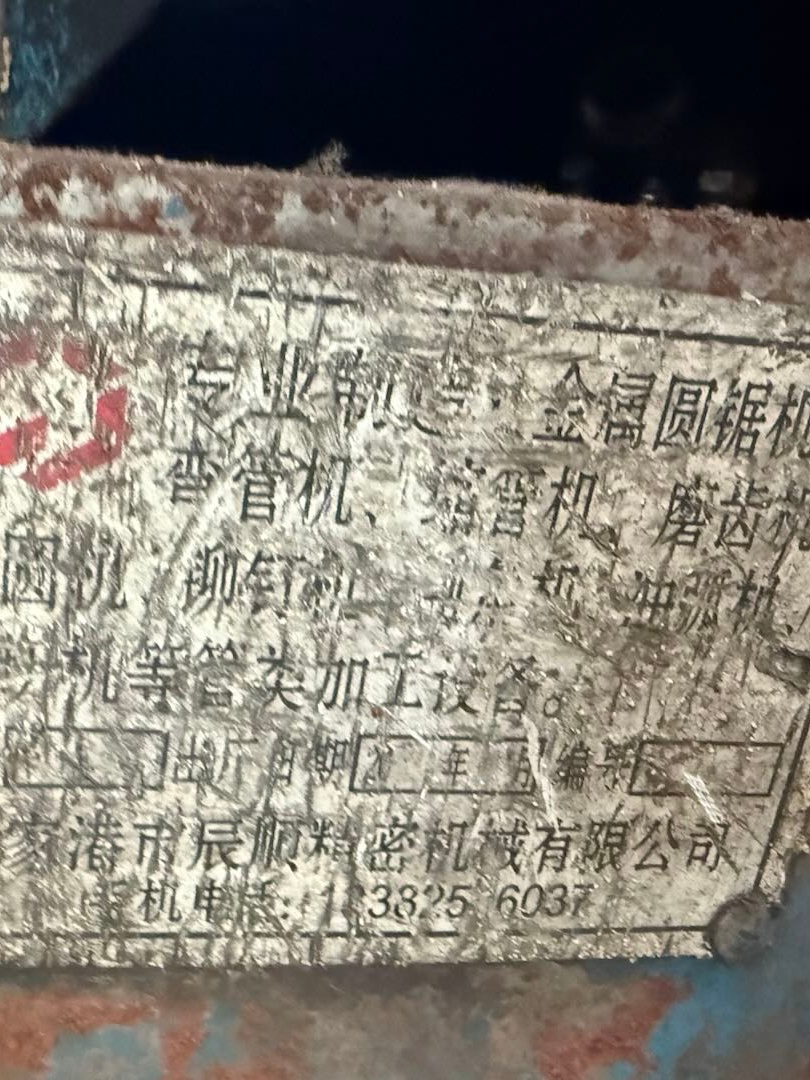 专业制造：金属圆锯机
弯管机、缩管机、磨齿机
圆机、铆钉机、冲弧机、
机等管类加工设备。
出厂日期 年 月 编号
家港市辰顺精密机械有限公司
手机电话: 6037